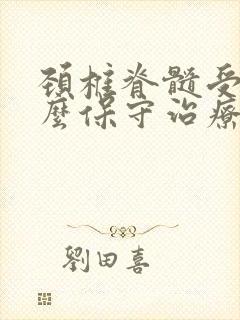 頚椎脊髓受
麼保守治療
劉田喜